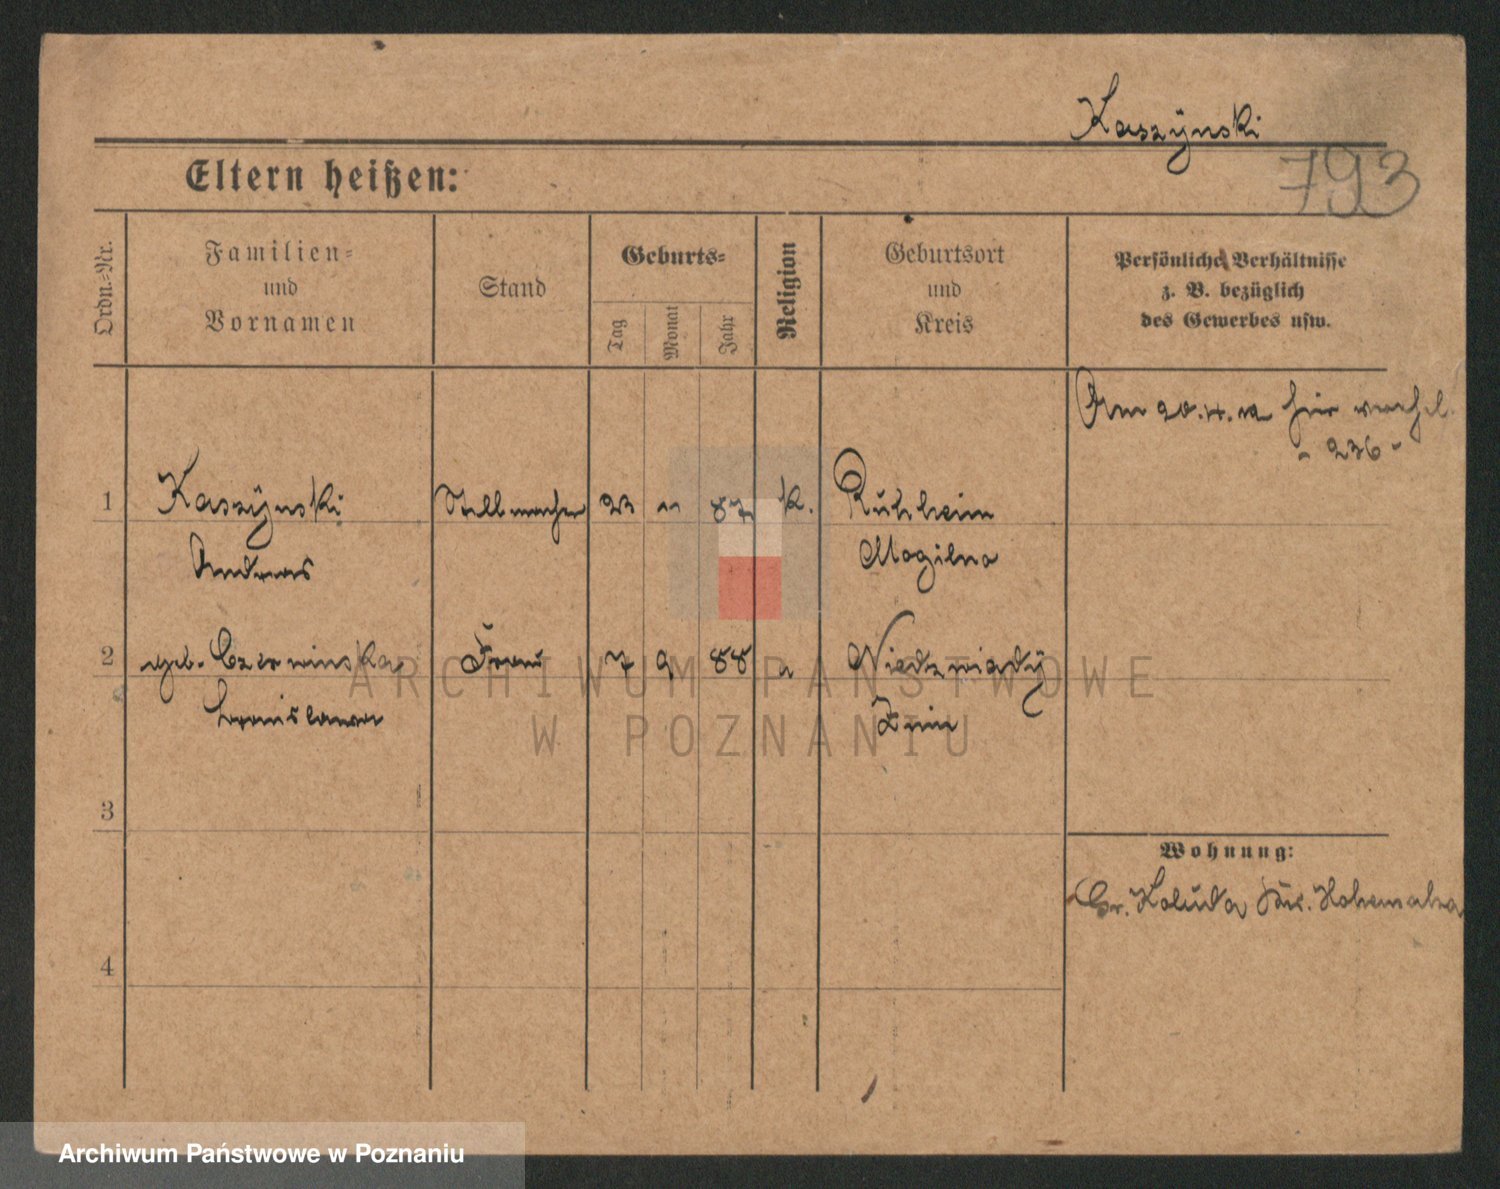 Kaszÿnski
793
Eltern heißen:
Ordn.-Nr.
Familien-
und
Vornamen
Stand
Geburts-
Tag
Monat
Jahr
Religion
Geburtsort
und
Kreis
Persönliche Verhältnisse
z. B. bezüglich
des Gewerbes usw.
Am 20.4.12 hier
- 236 -
1 Kaszÿnski Stellmacher 23 11 87 K. Ruhheim
Andreas Mogilno
2 geb. Czerwinska Frau 7 9 88 " Niedzwiadÿ
Znin
3
Wohnung:
Gr. Koluda Kr. Hohensalza
4
ARCHIWUM PAŃSTWOWE
W POZNANIU
Archiwum Państwowe w Poznaniu